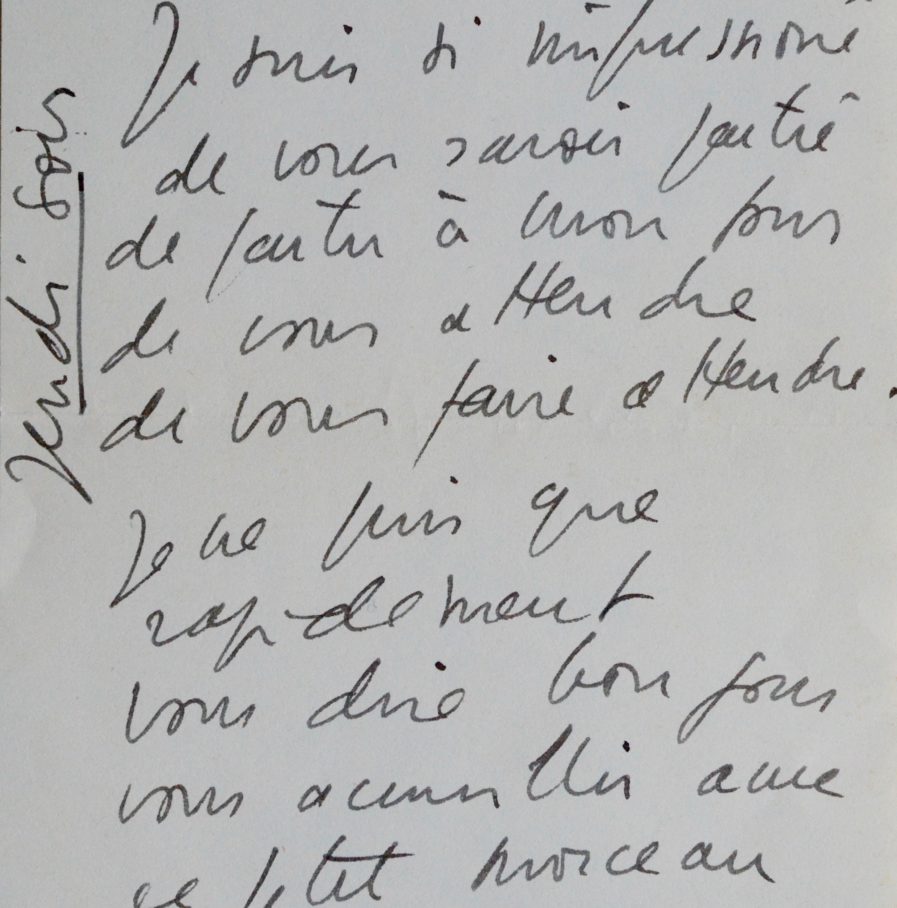 Jeudi soir
Je suis si impressioné
de vous savoir
de à mon
de vous attendre
de vous faire attendre.
Je ne puis que
rapidement
vous dire bon jour
vous accueillir avec
ce petit morceau